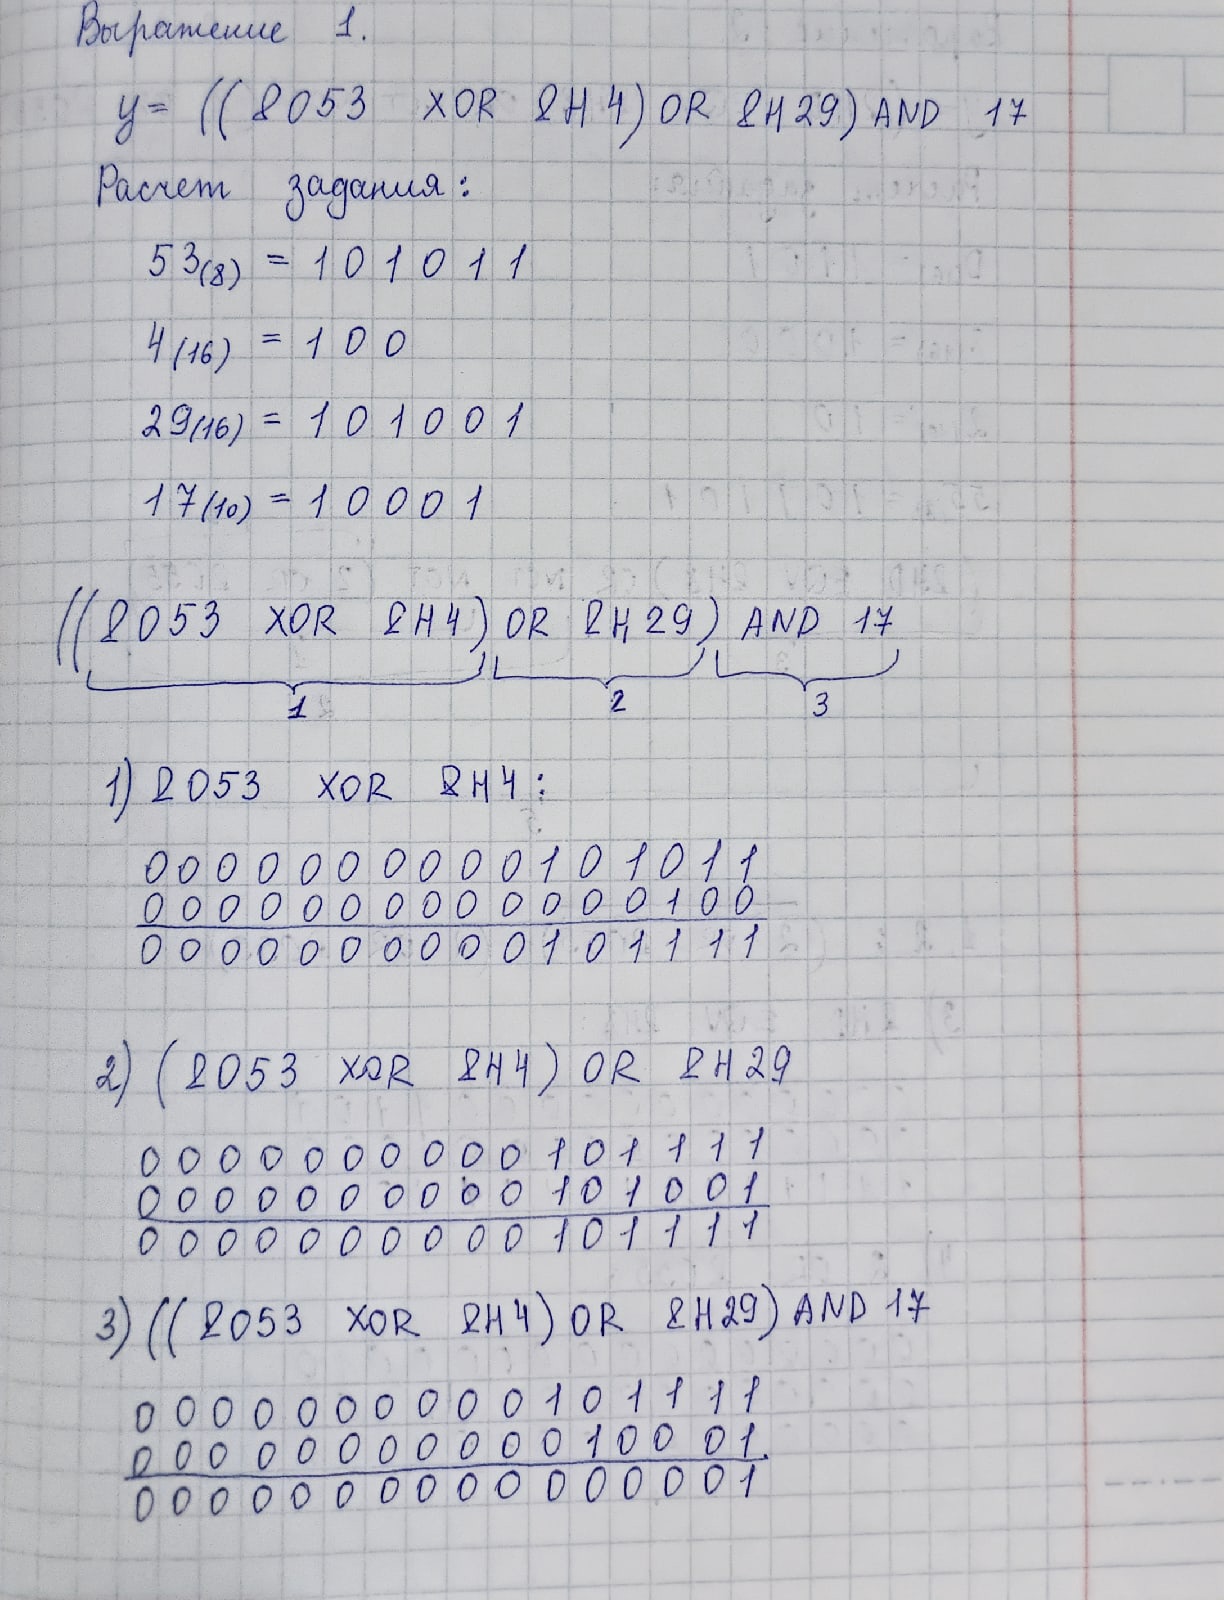 Выражение 1.
y= ((&O53 XOR &H4) OR &H29) AND 17
Расчет задания:
53(8) = 101011
4(16) = 100
29(16) = 101001
17(10) = 10001
((&O53 XOR &H4) OR &H29) AND 17
1 2 3
1) &O53 XOR &H4:
0000000000101011
0000000000000100
0000000000101111
2) (&O53 XOR &H4) OR &H29
0000000000101111
0000000000101001
0000000000101111
3) ((&O53 XOR &H4) OR &H29) AND 17
0000000000101111
0000000000010001
0000000000000001